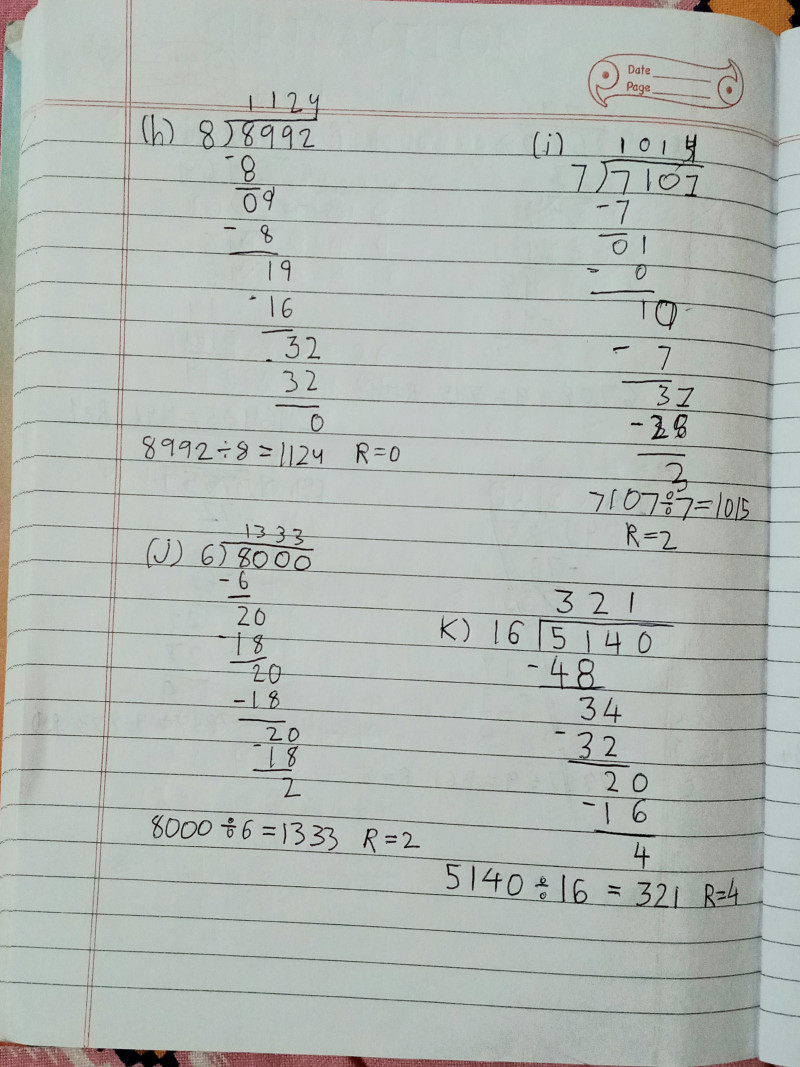 Date
Page
1124
(h) 8)8992
-8
09
- 8
19
-16
-32
32
0
8992÷8=1124 R=0
(i) 1014
7)7107
-7
01
- 0
10
- 7
37
-28
3
7107÷7=1015
R=2
1333
(j) 6)8000
-6
20
-18
20
-18
20
-18
2
8000÷6=1333 R=2
321
K) 16)5140
-48
34
-32
20
-16
4
5140÷16 = 321 R=4